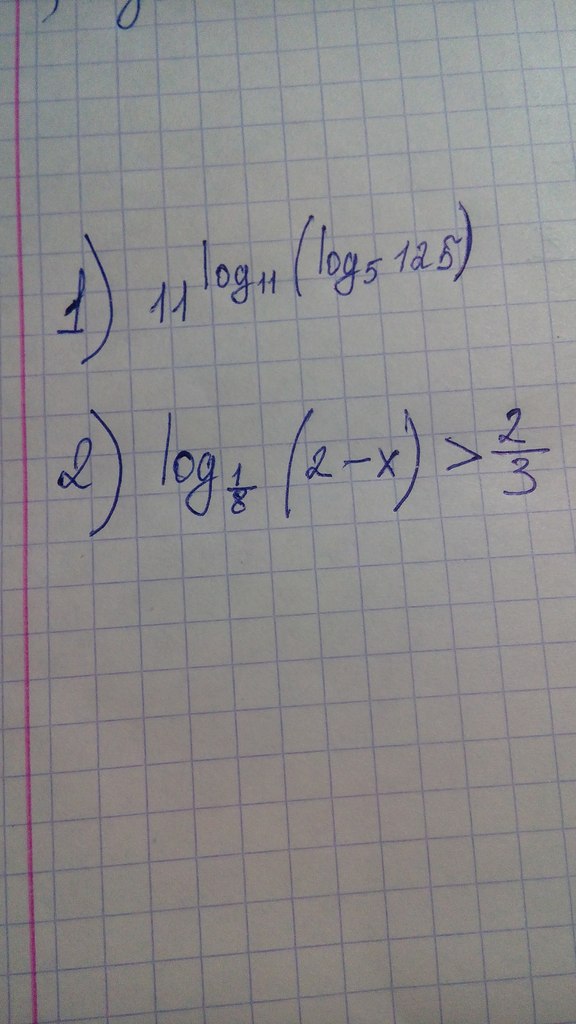 1) 11^log₁₁(log₅ 125)
2) log_{1/8} (2-x) > 2/3